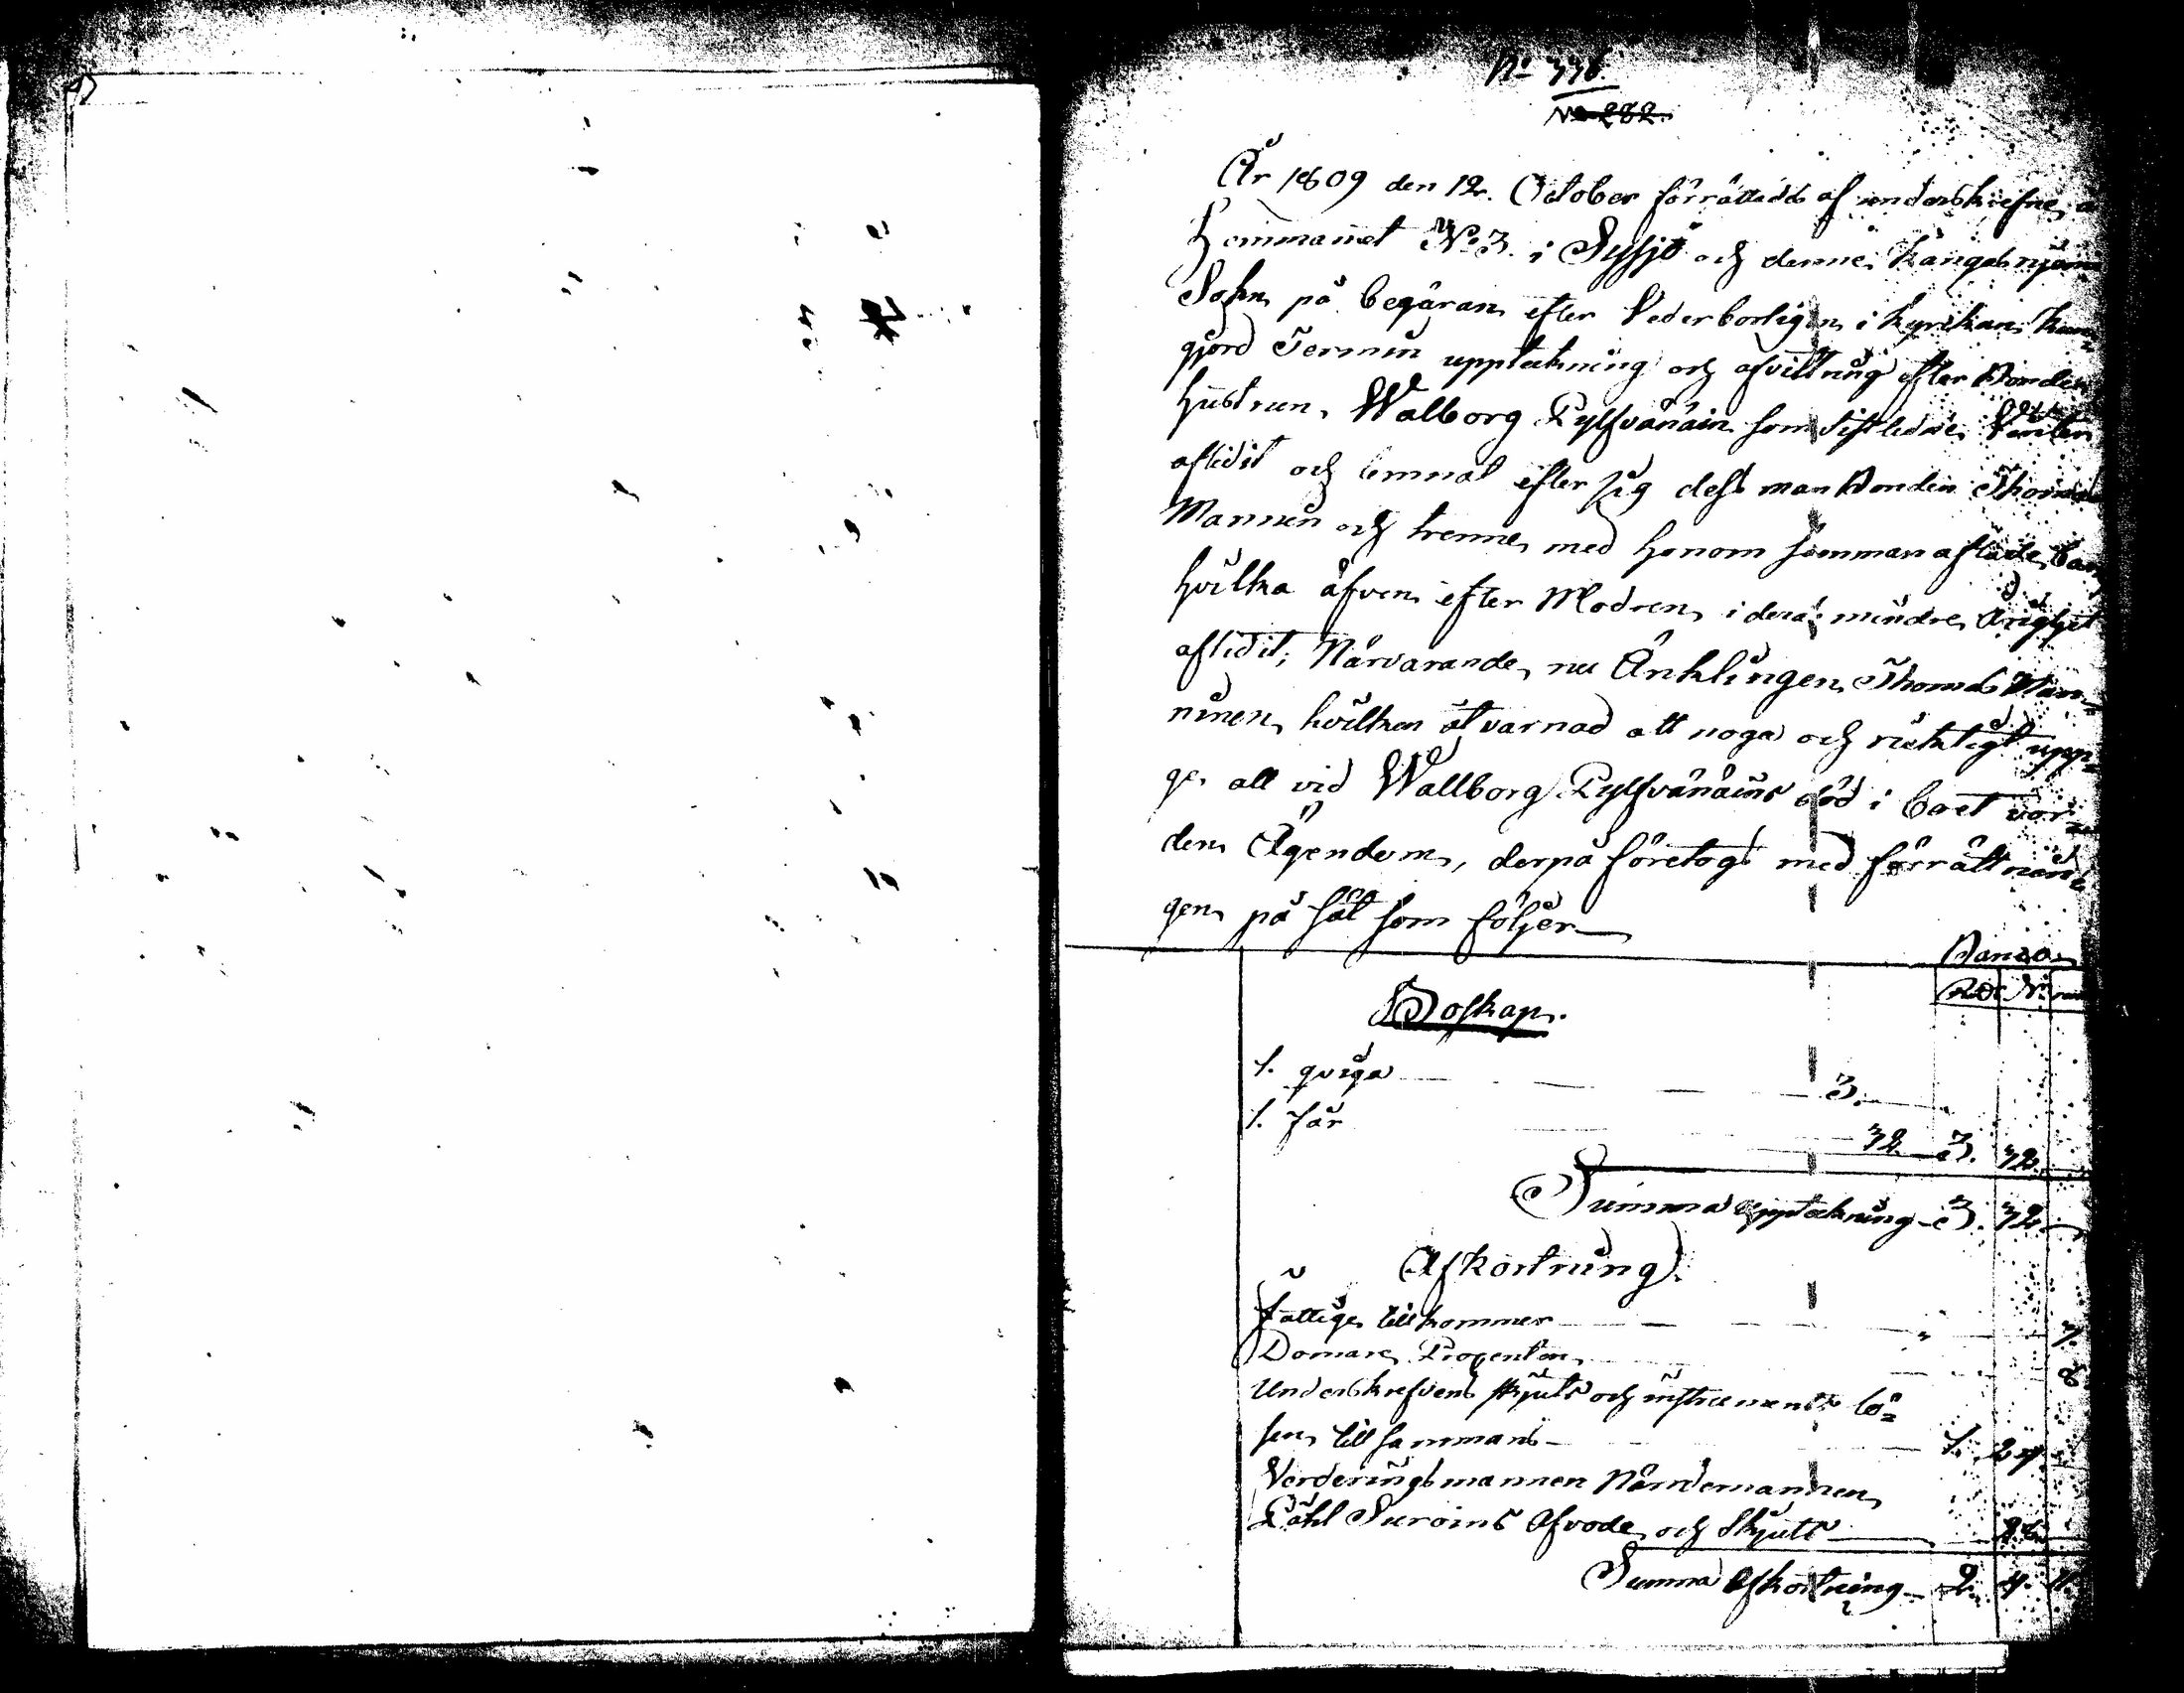 No 336.
No 282.
År 1809 den 12. October förrättades af underskrefne, å
Hemmanet No 3. i Syssjö och denne Kangasnjemi
Sokn på begäran efter Vederborligen i kyrkan kun-
gjord Termin uppteckning och afvittring efter Bonden
hustrun, Walborg Pylfvänäin som sistledne Vinter
aflidit och lemnat efter sig dess man Bonden Thomas
Manninen och trenne med honom samman aflade barn
hvilka äfven efter Modren i deras mindre Årighet
aflidit; Närvarande nu Änklingen Thomas Man-
ninen, hvilken åtvarnad att noga och ricktigt upp-
ge all vid Wallborg Pylfvänäins död i boet var-
den Ägendom, derpå företogs med förrättnin-
gen på sätt som följer
Banco
Rdr sk. rn
Boskap.
1. qviga 3.
1. får 32. 3. 32.
Summa uppteckning 3. 32.
Afkortning.
Fattige tillkommer 3.
Domare Procenten 8
Underskrefvens skjuts och instruments lö-
sen tillsammans 1. 24.
Värderingsmannen Nämdemannen
Påhl Suroins Afvode och Skjuts 28.
Summa Afkortning 2. 4. 11.